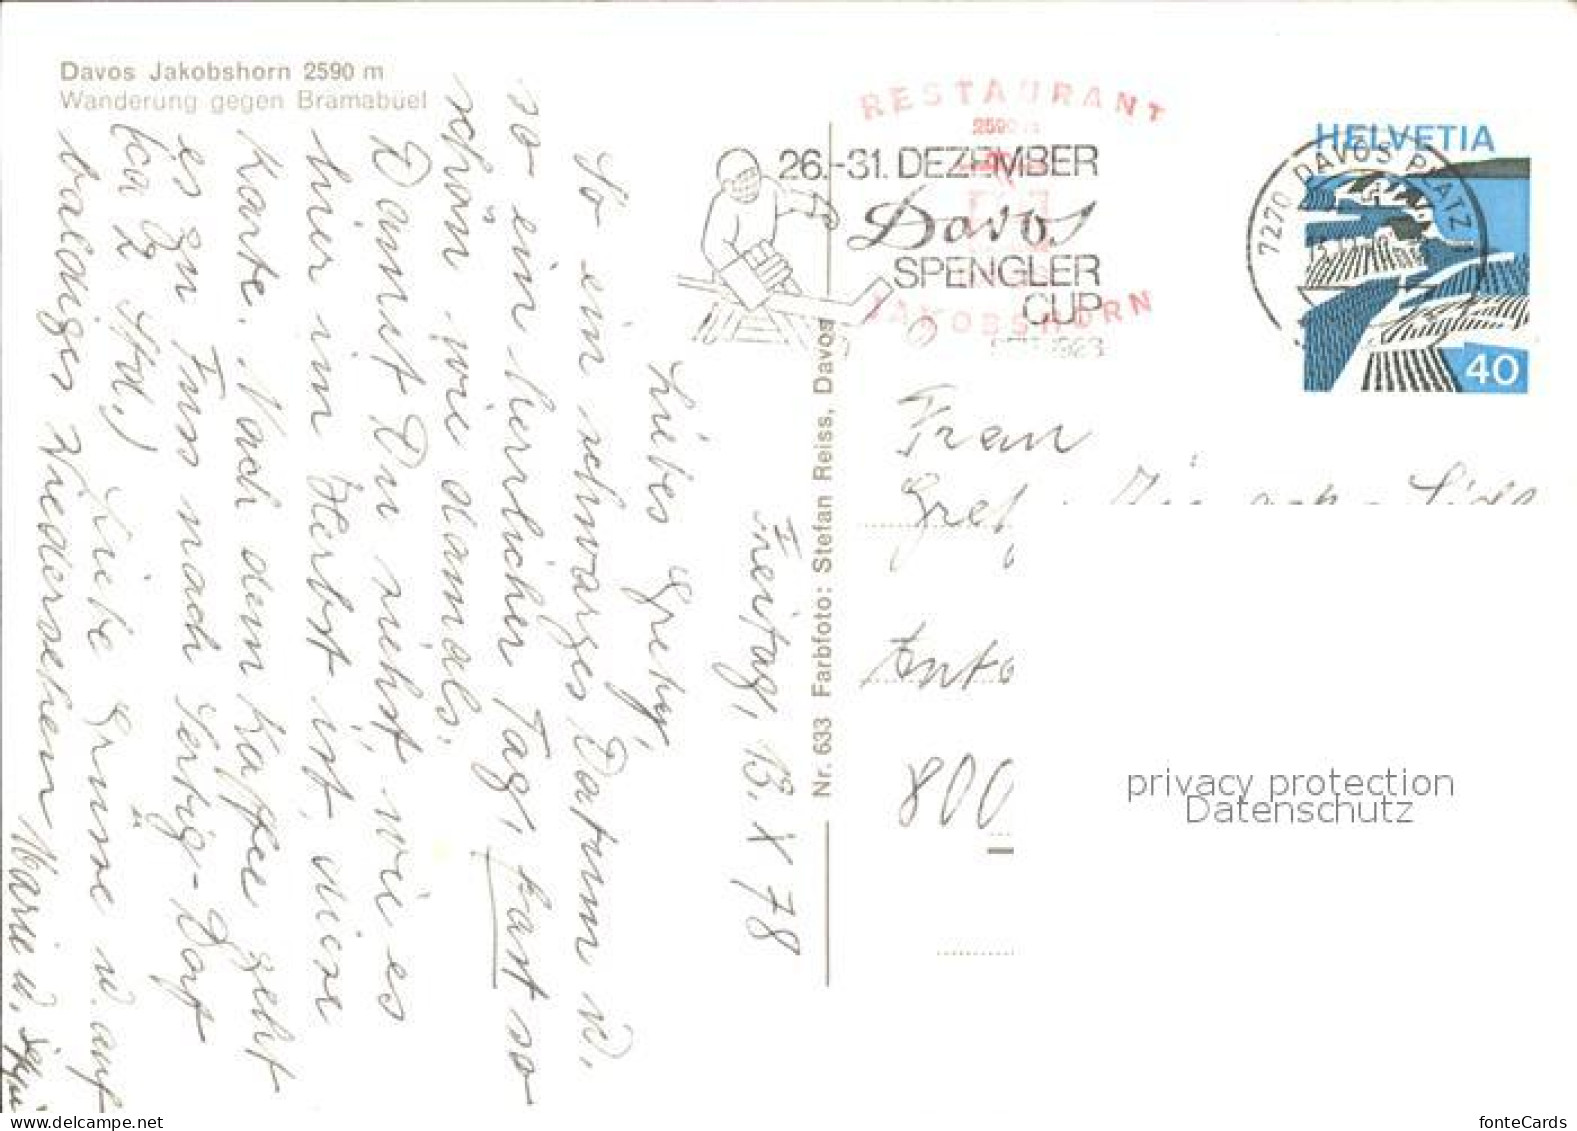 Davos Jakobshorn 2590 m
Wanderung gegen Brämabüel
Freitag, 13. X 78
Liebes Grety,
So ein schwarzes Datum u.
so ein herrlicher Tag, fast so
schön wie damals.
Damit Du siehst, wie es
hier im Herbst ist, diese
Karte. Nach dem Kaffee geht
es zu Fuss nach Sertig-Dorf
(ca 2 Std.)
Liebe Grüsse u. auf
baldiges Wiedersehen
Marie u.
Nr. 633 Farbfoto: Stefan Reiss, Davos
RESTAURANT
2590 m
JAKOBSHORN
26.-31. DEZEMBER
Davos
SPENGLER
CUP
7270 DAVOS PLATZ
HELVETIA
40
Frau
800
privacy protection
Datenschutz
fonteCards